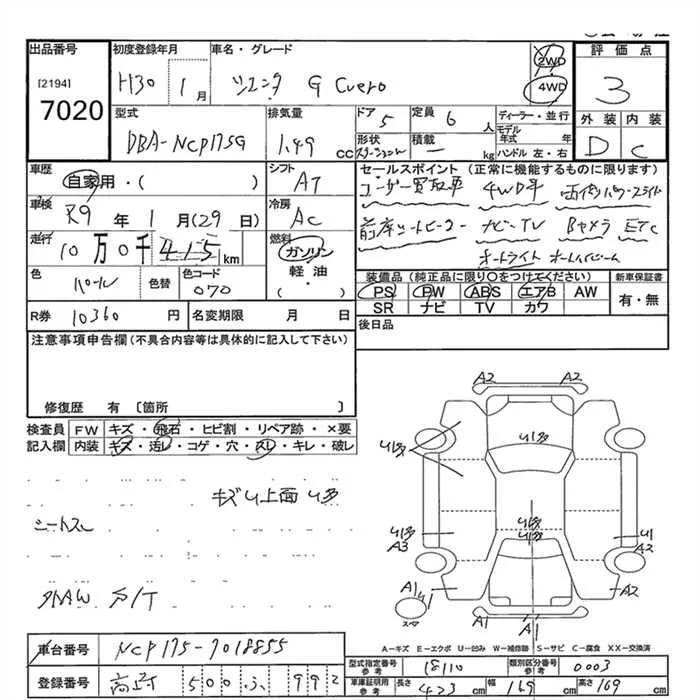 出品番号 初度登録年月 車名・グレード 評価点
[2194]
7020
H30 1月 シエンタ G Cuero 2WD 4WD 3
型式 排気量 ドア 定員 ディーラー・並行 外装 内装
DBA-NCP175G 1.49 CC 5 6人 モデル年式 年 D C
形状 ステーション 積載 ー kg ハンドル 左・右
車歴 シフト セールスポイント (正常に機能するものに限ります)
自家用・( ) AT ユーザー買取車 4WD車 両側パワースライド
車検 冷房
R9年 1月(29日) AC 前席シートヒーター ナビ・TV Bカメラ ETC
走行 燃料
10万0千415km ガソリン オートライト オートハイビーム
軽油
( )
色 色替 色コード 装備品(純正品に限り○をつけてください) 新車保証書
パール 070 PS PW ABS エアB AW 有・無
SR ナビ TV カワ
R券 10360円 名変期限 月 日 後日品
注意事項申告欄(不具合内容等は具体的に記入して下さい)
修復歴 有 〔箇所 〕
検査員 FW キズ・飛石・ヒビ割・リペア跡・×要
記入欄 内装 キズ・汚レ・コゲ・穴・スレ・キレ・破レ
キズU上面U多
シートスレ
外AW S/T
A2 A2
U多
U多
U多 U多 U1
A3 U多 A2
A1 U1 A2
スペア A1 A1
A-キズ E-エクボ U-凹み W-補修跡 S-サビ C-腐食 XX-交換済
車台番号 NCP175-7018855
型式指定番号 参考 18110 類別区分番号 参考 0003
登録番号 500 ふ 992
車庫証明用 参考 長さ 423cm 幅 169cm 高さ 169cm